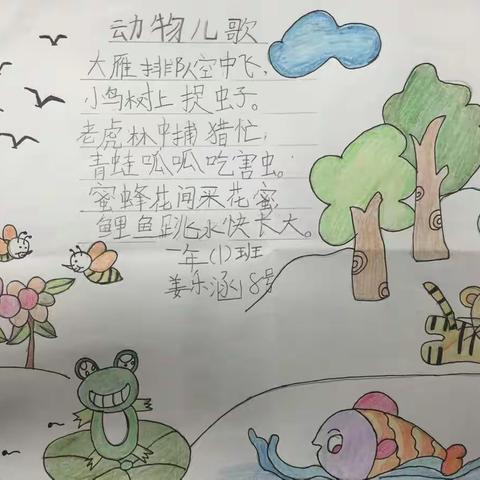 动物儿歌
大雁排队空中飞,
小鸟树上捉虫子。
老虎林中捕猎忙,
青蛙呱呱吃害虫。
蜜蜂花间采花蜜,
鲤鱼跳水快长大。
一年(1)班
姜乐涵18号